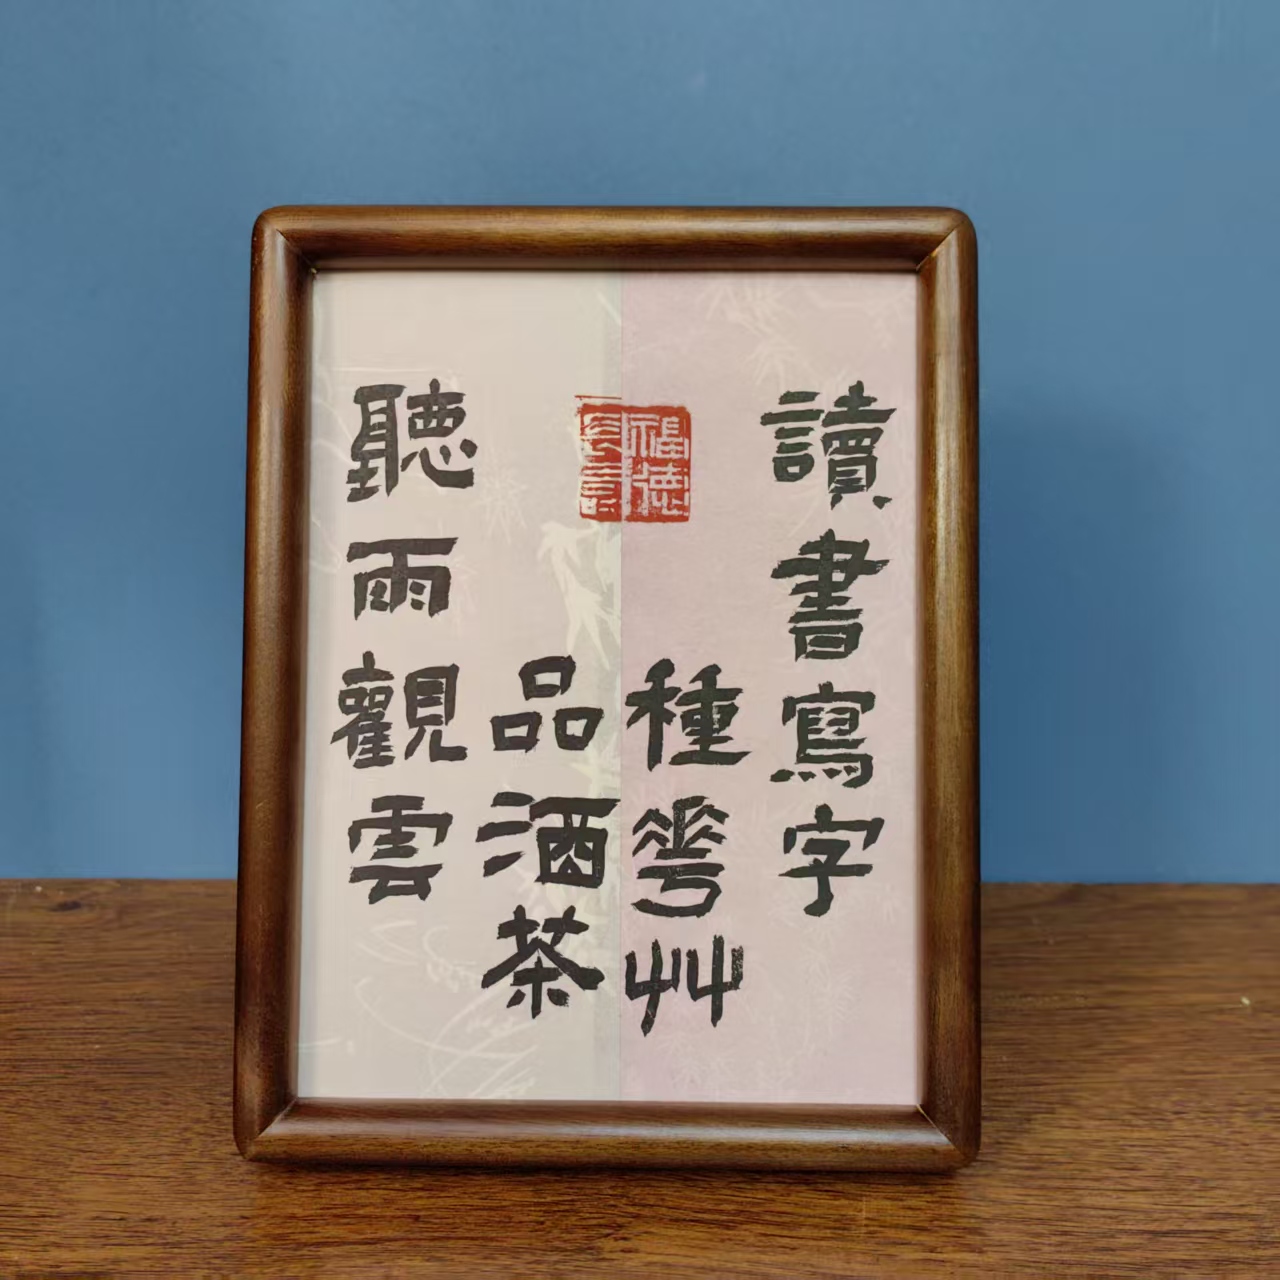 讀書寫字
種花艸
品酒茶
聽雨觀雲
福德